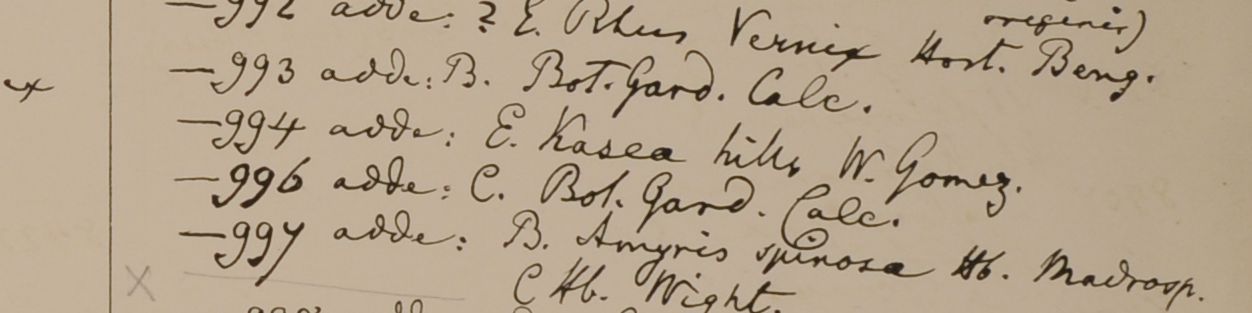 origenis)
—992 adde: ? E. Rhus Vernix Hort. Beng.
—993 adde: B. Bot. Gard. Calc.
ex
—994 adde: E. Kasea hills W. Gomez.
—996 adde: C. Bot. Gard. Calc.
—997 adde: B. Amyris spinosa Hb. Madrasp.
X
C Hb. Wight.